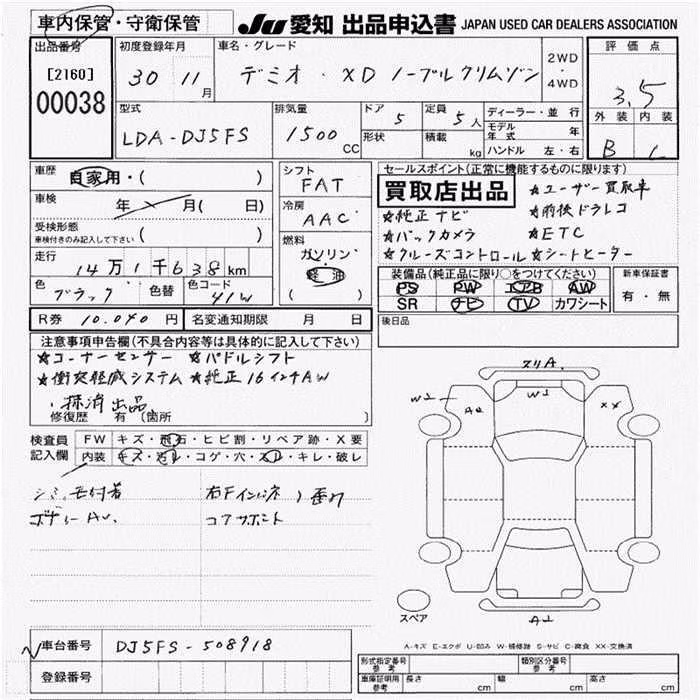 車内保管・守衛保管
JU 愛知 出品申込書 JAPAN USED CAR DEALERS ASSOCIATION
出品番号
[2160]
00038
初度登録年月
30 11月
車名・グレード
デミオ・XD ノーブルクリムゾン
2WD・4WD
評価点
3.5
外装 内装
B C
型式
LDA-DJ5FS
排気量
1500 CC
ドア 5
形状
定員 5人
積載 kg
ディーラー・並行
モデル年式 年
ハンドル 左・右
車歴 自家用・( )
車検 年 月( 日)
受検形態
車検付きのみ記入して下さい ( )
走行 14万1千638km
色 ブラック 色替 色コード 41W
シフト
FAT
冷房
AAC
燃料
ガソリン・軽油
( )
セールスポイント(正常に機能するものに限ります)
買取店出品 ★ユーザー買取車
★純正ナビ ★前後ドラレコ
★バックカメラ ★ETC
★クルーズコントロール ★シートヒーター
装備品(純正品に限り○をつけてください) 新車保証書
PS PW エアB AW
SR ナビ TV カワシート
有・無
R券 10.040円 名変通知期限 月 日
後日品
注意事項申告欄(不具合内容等は具体的に記入して下さい)
★コーナーセンサー ★パドルシフト
★衝突軽減システム ★純正16インチAW
・抹消出品
修復歴 有 (箇所 )
検査員記入欄
FW キズ・飛石・ヒビ割・リペア跡・X要
内装 キズ・汚レ・コゲ・穴・スレ・キレ・破レ
右Fインパネ
コアサポート
スリA.
W1
A2
W1
XX
A2
スペア
A-キズ E-エクボ U-凹み W-補修跡 S-サビ C-腐食 XX-交換済
車台番号 DJ5FS-508918
登録番号
形式指定番号 参考
類別区分番号 参考
車庫証明用 参考 長さ cm 幅 cm 高さ cm